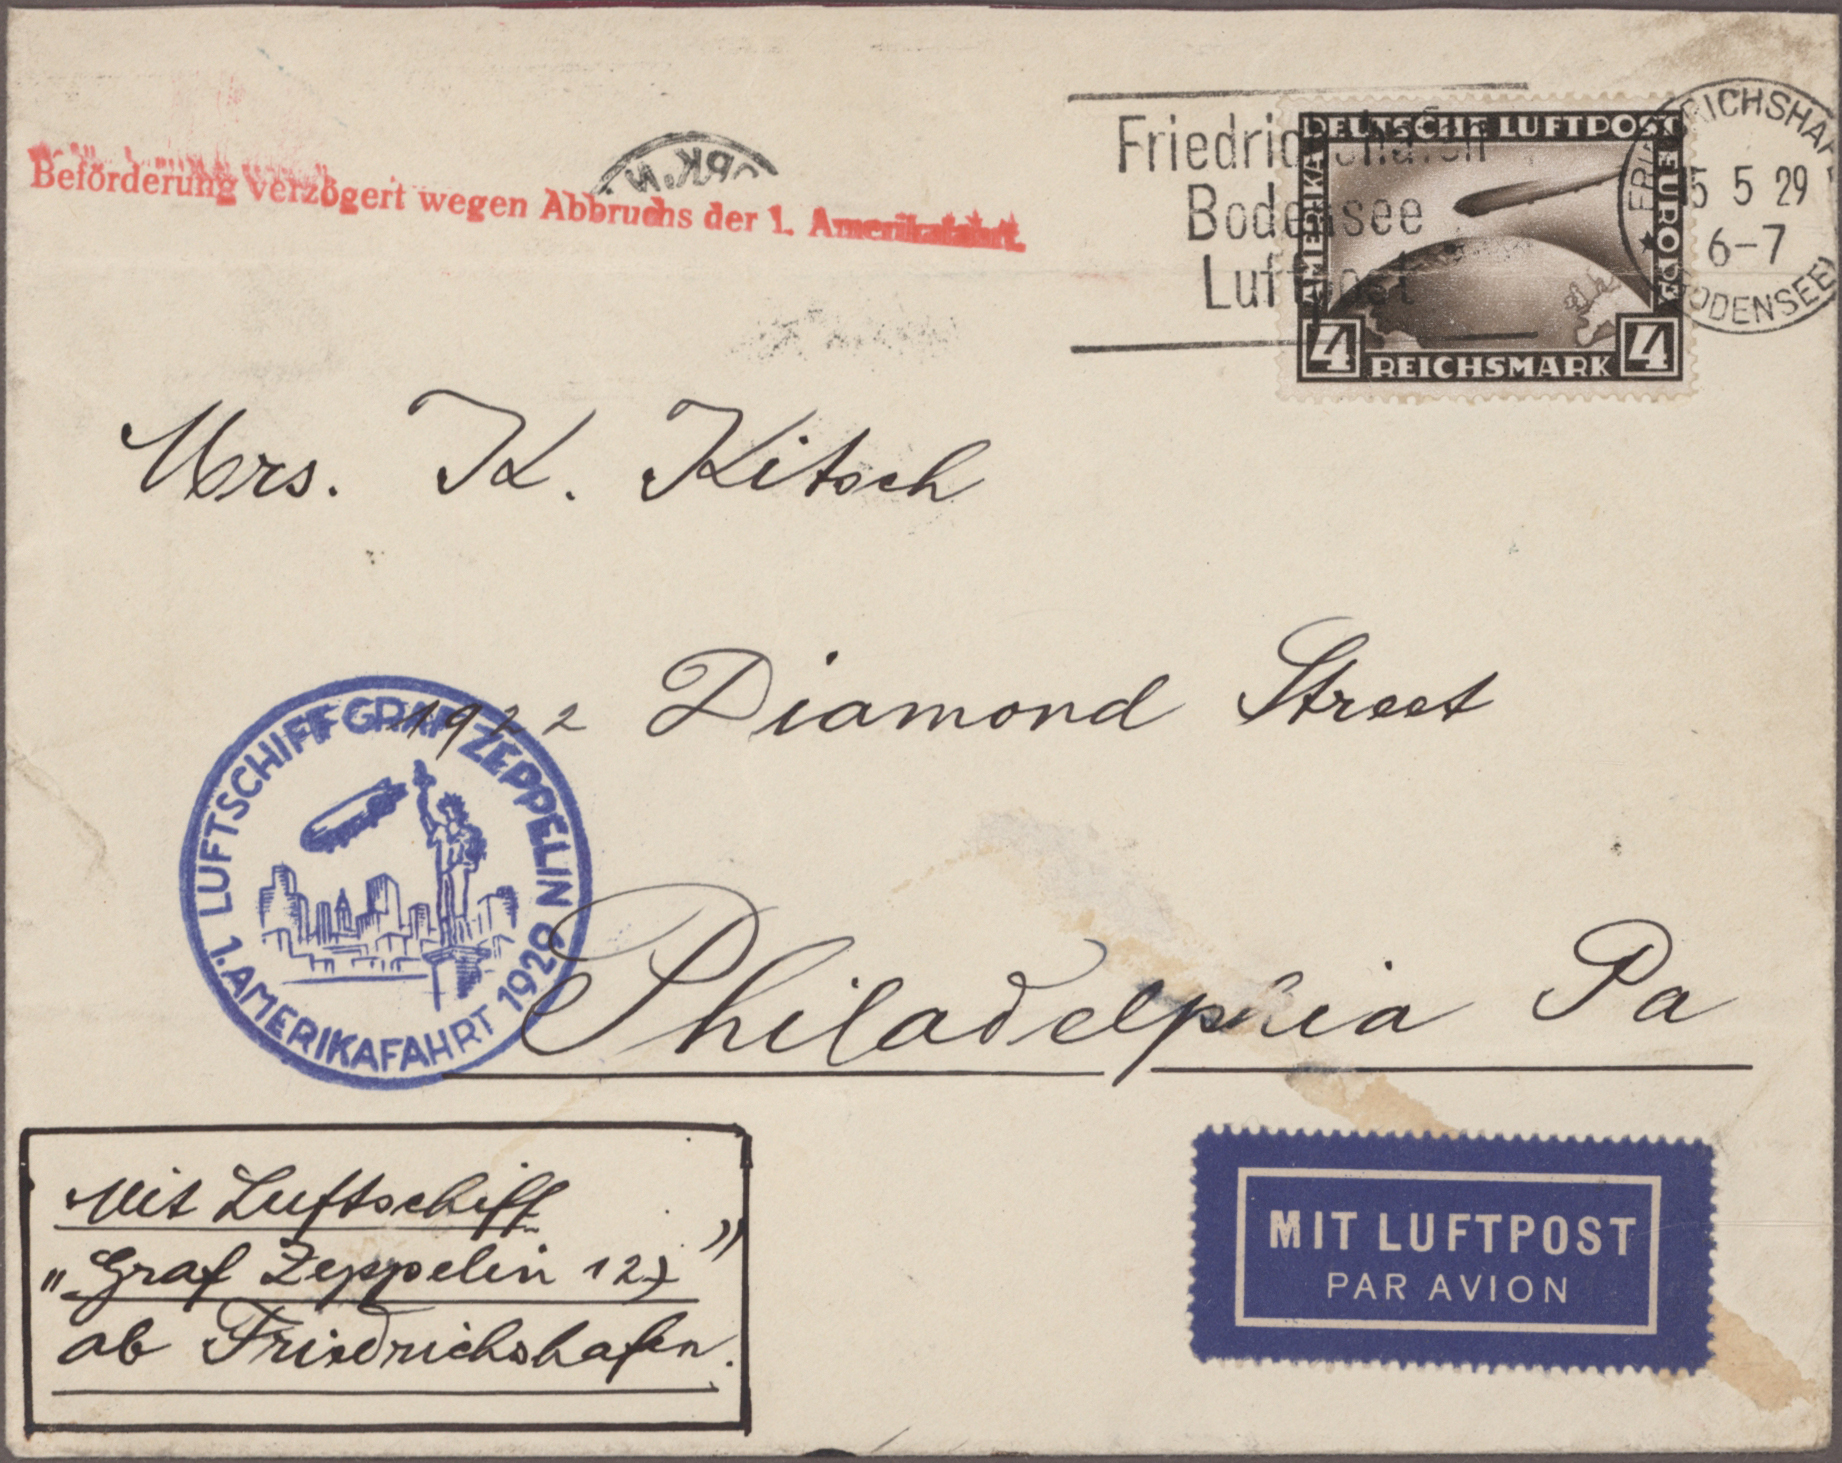 Beförderung verzögert wegen Abbruchs der 1. Amerikafahrt.
Friedrichshafen
Bodensee
Luftpost
DEUTSCHE LUFTPOST
AMERIKA
EUROPA
4 REICHSMARK 4
FRIEDRICHSHAFEN
5 5 29
6-7
BODENSEE
Mrs. K. Kitsch
1922 Diamond Street
Philadelphia Pa
LUFTSCHIFF GRAF ZEPPELIN
1. AMERIKAFAHRT 1929
Mit Luftschiff
"Graf Zeppelin 127"
ab Friedrichshafen.
MIT LUFTPOST
PAR AVION